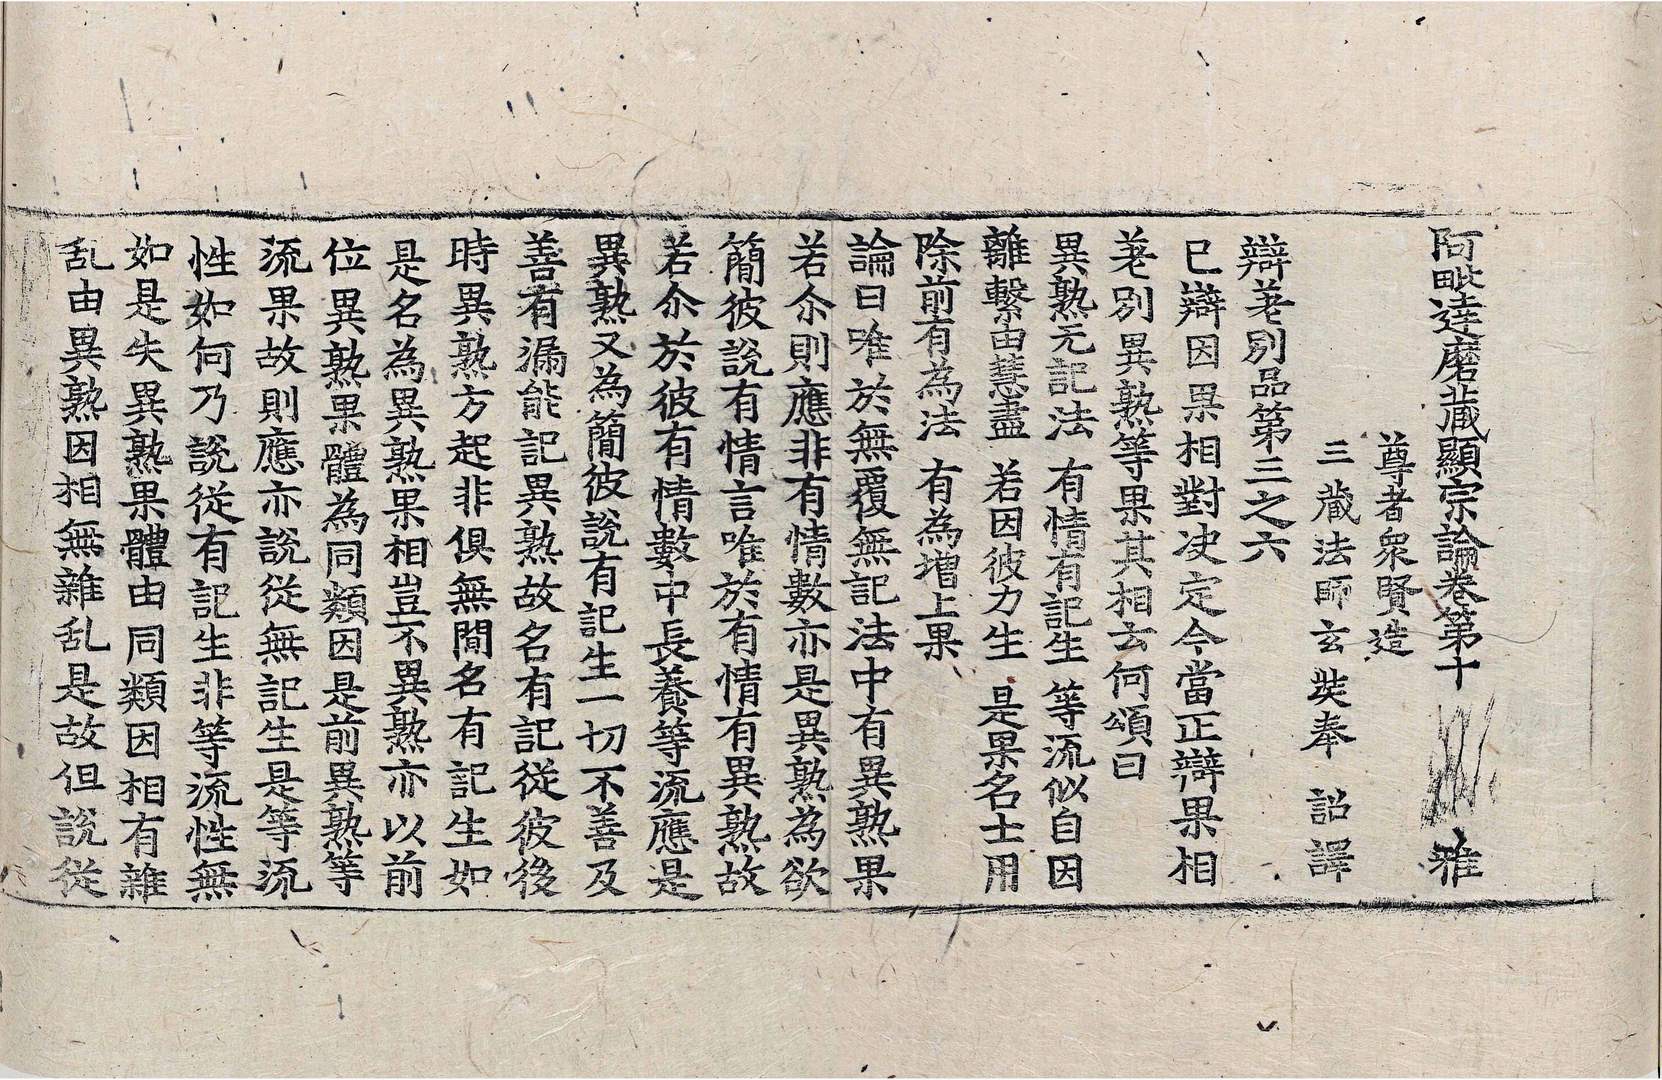 阿毗達磨藏顯宗論卷第十 雅
尊者衆賢造
三藏法師玄奘奉 詔譯
辯差別品第三之六
已辯因果相對决定今當正辯果相
差別異熟等果其相云何頌曰
異熟无記法 有情有記生 等流似自因
離繫由慧盡 若因彼力生 是果名士用
除前有為法 有為增上果
論曰唯於無覆無記法中有異熟果
若尒則應非有情數亦是異熟為欲
簡彼說有情言唯於有情有異熟故
若尒於彼有情數中長養等流應是
異熟又為簡彼說有記生一切不善及
善有漏能記異熟故名有記從彼後
時異熟方起非俱無間名有記生如
是名為異熟果相豈不異熟亦以前
位異熟果體為同類因是前異熟等
流果故則應亦說從無記生是等流
性如何乃說從有記生非等流性無
如是失異熟果體由同類因相有雜
乱由異熟因相無雜乱是故但說從